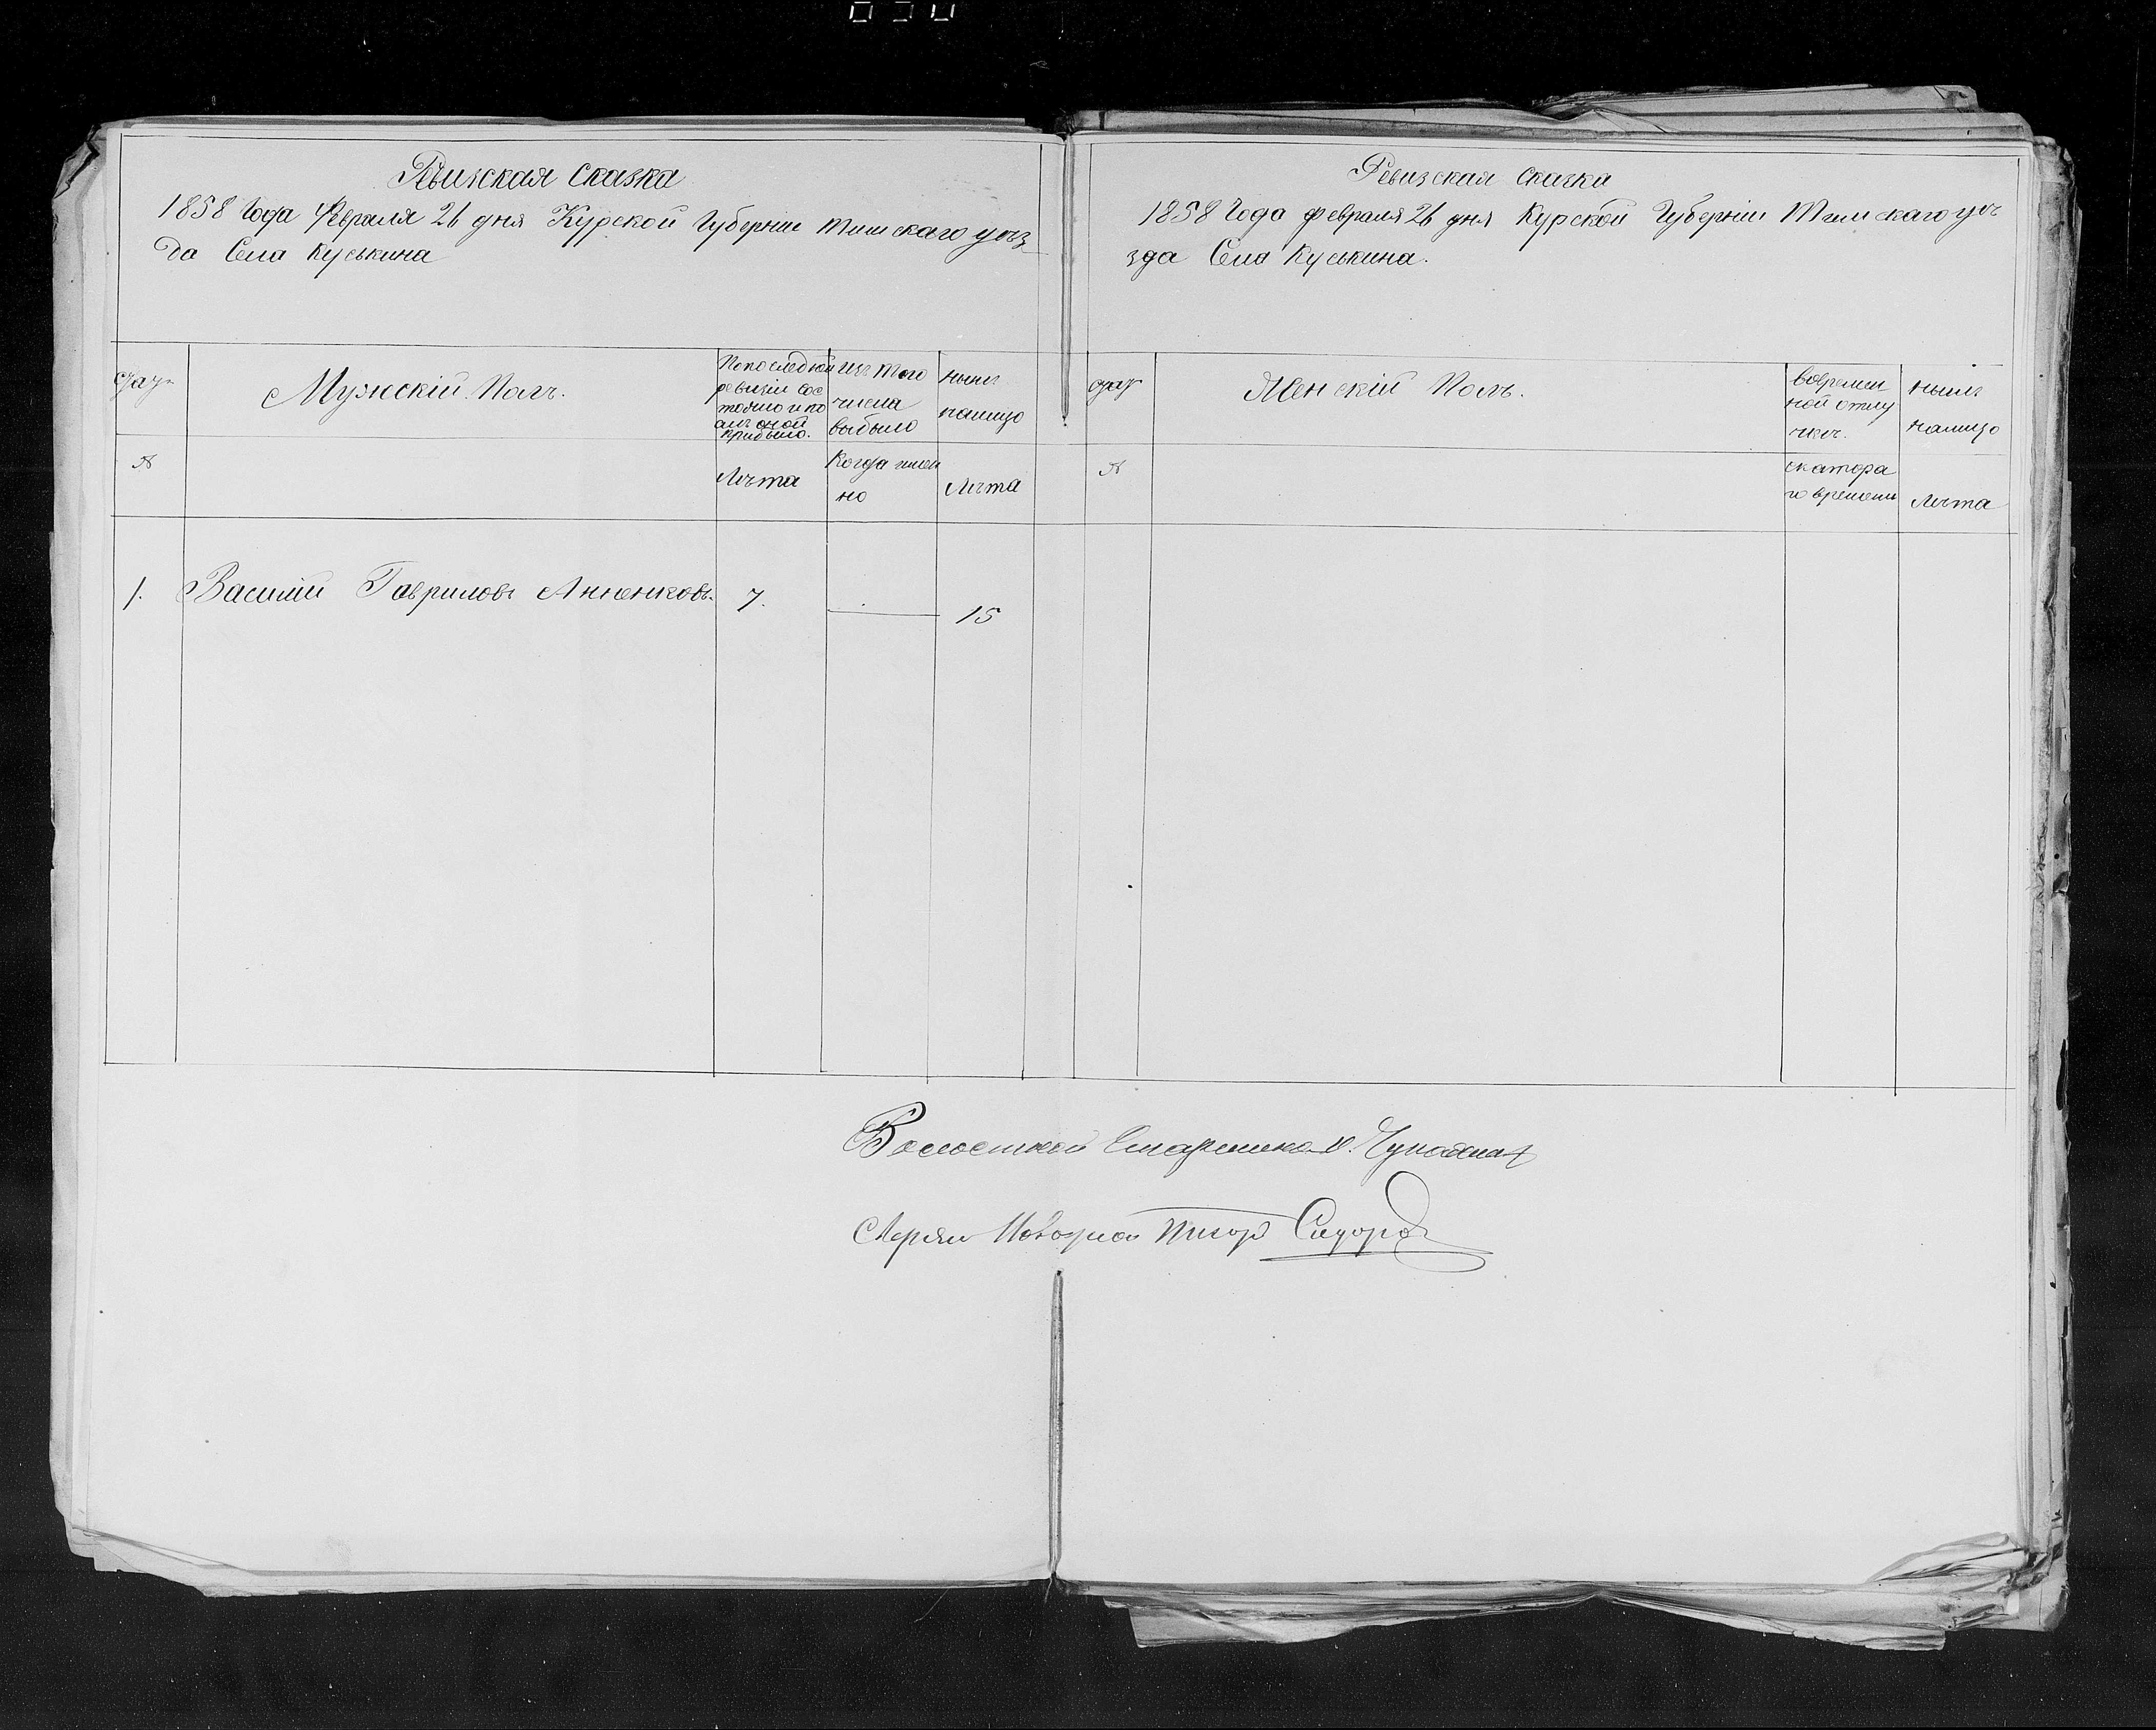 Ревизская сказка
1858 Года Февраля 26 дня Курской Губернии Тимскаго уѣз
да Села Куськина
Мужскій Полъ.
По последней
ревизіи сос
тояло и по
слѣ оной
прибыло.
Изъ того
числа
выбыло
нынѣ
налицо
№
Лѣта
Когда имен
но
Лѣта
1. Василій Гавриловъ Анненковъ. 7. 15
Ревизская сказка
1858 Года февраля 26 дня Курской Губерніи Тимскаго уѣ
зда Села Куськина.
Женскій Полъ.
Во времен
ной отлу
чкѣ.
нынѣ
налицо
№
съ катора
го времени
Лѣта
Волостной Старшина
Писарь Сидоровъ